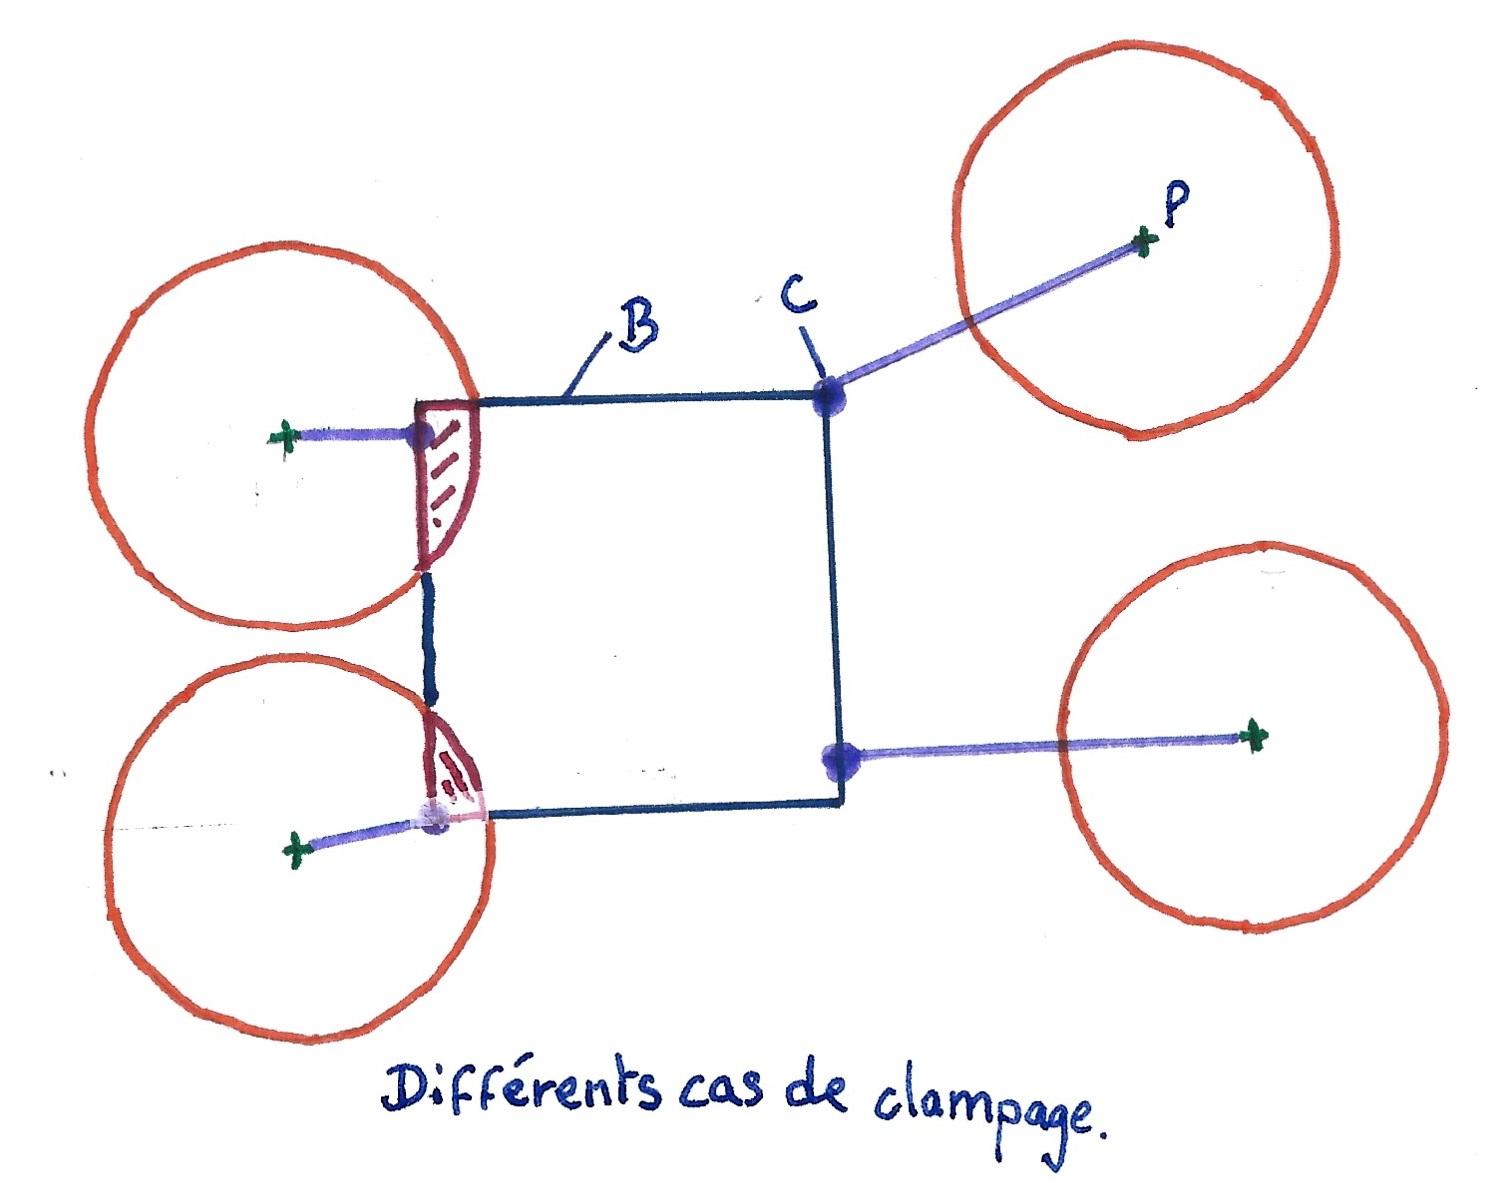 P
C
B
Différents cas de clampage.